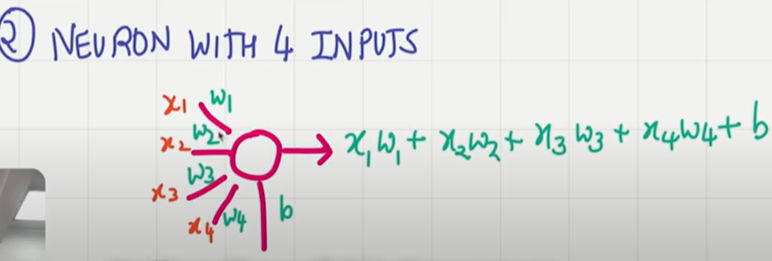 ② NEURON WITH 4 INPUTS
x1 w1
x2 w2
x3 w3
x4 w4 b
x1w1 + x2w2 + x3w3 + x4w4 + b